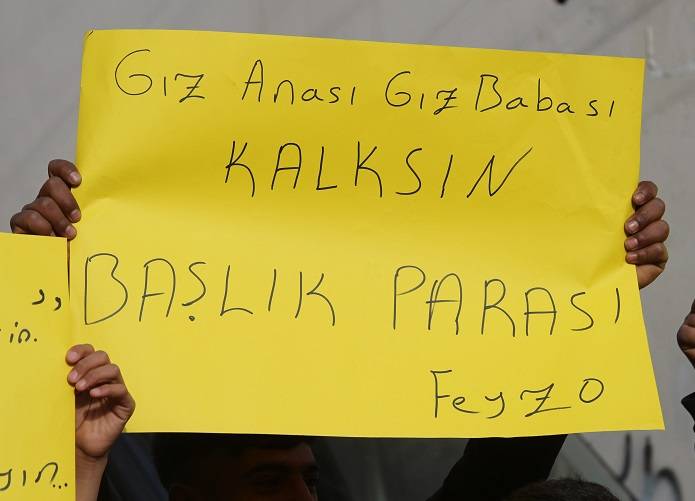 Gız Anası Gız Babası
KALKSIN
BAŞLIK PARASI
Feyzo
in.
yın..